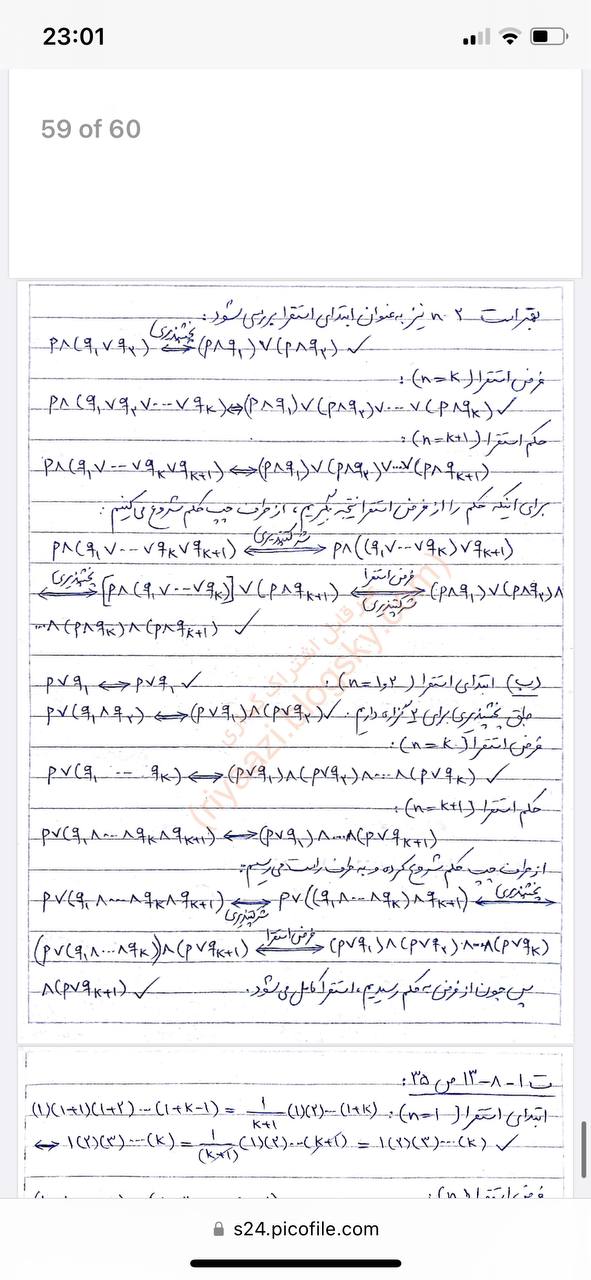 23:01
59 of 60
بهتر است n=۲ نیز به عنوان ابتدای استقرا بررسی شود:
p∧(q₁∨q₂) ⟺ (پخشپذیری) (p∧q₁)∨(p∧q₂) ✓
فرض استقرا (n=k):
p∧(q₁∨q₂∨---∨qₖ)⇔(p∧q₁)∨(p∧q₂)∨---∨(p∧qₖ) ✓
حکم استقرا (n=k+1):
p∧(q₁∨--∨qₖ∨qₖ₊₁)⟺(p∧q₁)∨(p∧q₂)∨...∨(p∧qₖ₊₁)
برای اینکه حکم را از فرض استقرا نتیجه بگیریم، از طرف چپ حکم شروع می‌کنیم:
p∧(q₁∨--∨qₖ∨qₖ₊₁) ⟺ (شرکتپذیری) p∧((q₁∨--∨qₖ)∨qₖ₊₁)
⟺ (پخشپذیری) [p∧(q₁∨--∨qₖ)]∨(p∧qₖ₊₁) ⟺ (فرض استقرا شرکتپذیری) (p∧q₁)∨(p∧q₂)∧
---∧(p∧qₖ)∧(p∧qₖ₊₁) ✓
(ب) ابتدای استقرا (n=1و۲): p∨q₁ ⟺ p∨q₁ ✓
طبق پخشپذیری برای ۲ گزاره داریم. p∨(q₁∧q₂) ⟺ (p∨q₁)∧(p∨q₂) ✓
فرض استقرا (n=k):
p∨(q₁ --- qₖ) ⟺ (p∨q₁)∧(p∨q₂)∧---∧(p∨qₖ) ✓
حکم استقرا (n=k+1):
p∨(q₁∧---∧qₖ∧qₖ₊₁) ⟺ (p∨q₁)∧...∧(p∨qₖ₊₁)
از طرف چپ حکم شروع کرده و به طرف راست می‌رسیم:
p∨(q₁∧---∧qₖ∧qₖ₊₁) ⟺ (شرکتپذیری) p∨((q₁∧---∧qₖ)∧qₖ₊₁) ⟺ (پخشپذیری)
(p∨(q₁∧...∧qₖ))∧(p∨qₖ₊₁) ⟺ (فرض استقرا) (p∨q₁)∧(p∨q₂)∧---∧(p∨qₖ)
∧(p∨qₖ₊₁) ✓ پس چون از فرض به حکم رسیدیم، استقرا کامل می‌شود.
ت ۱-۸-۱۳ ص ۳۵:
ابتدای استقرا (n=1): (1)(1+1)(1+۲)---(1+k-1) = 1/(k+1) (1)(۲)--(1+k)
⇔ 1(۲)(۳)---(k) = 1/(k+1) (1)(۲)---(k+1) = 1(۲)(۳)---(k) ✓
(riyaazi.blogsky.com)
s24.picofile.com